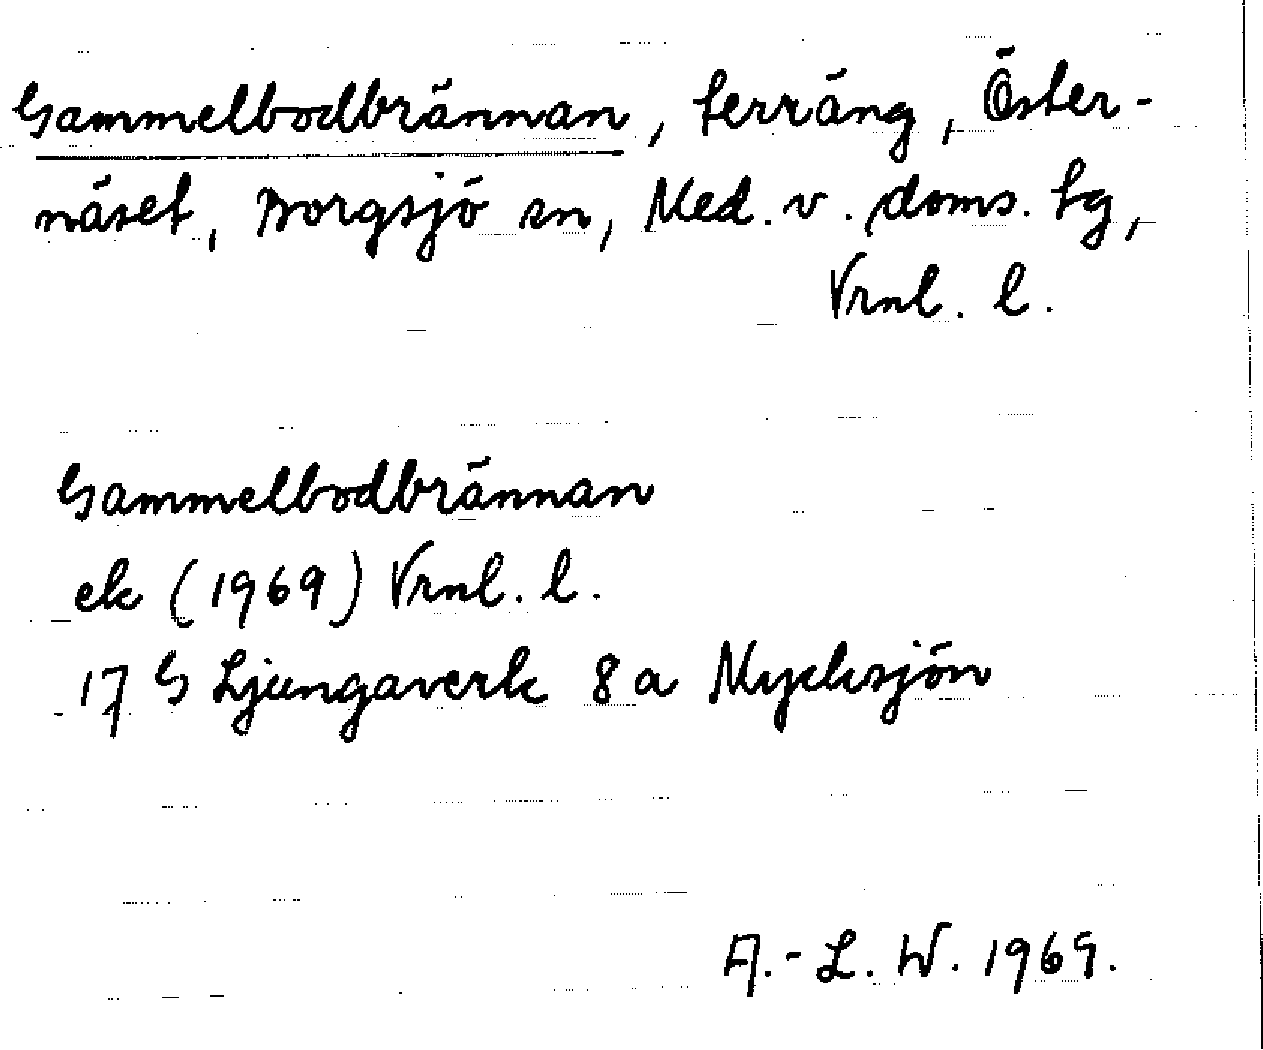 Gammelbodbrännan, terräng, Öster-
näset, Borgsjö sn, Med. v. doms. tg,
Vrnl. l.
Gammelbodbrännan
ek (1969) Vrnl. l.
17 G Ljungaverk 8 a Mycksjön
A.-L. W. 1969.